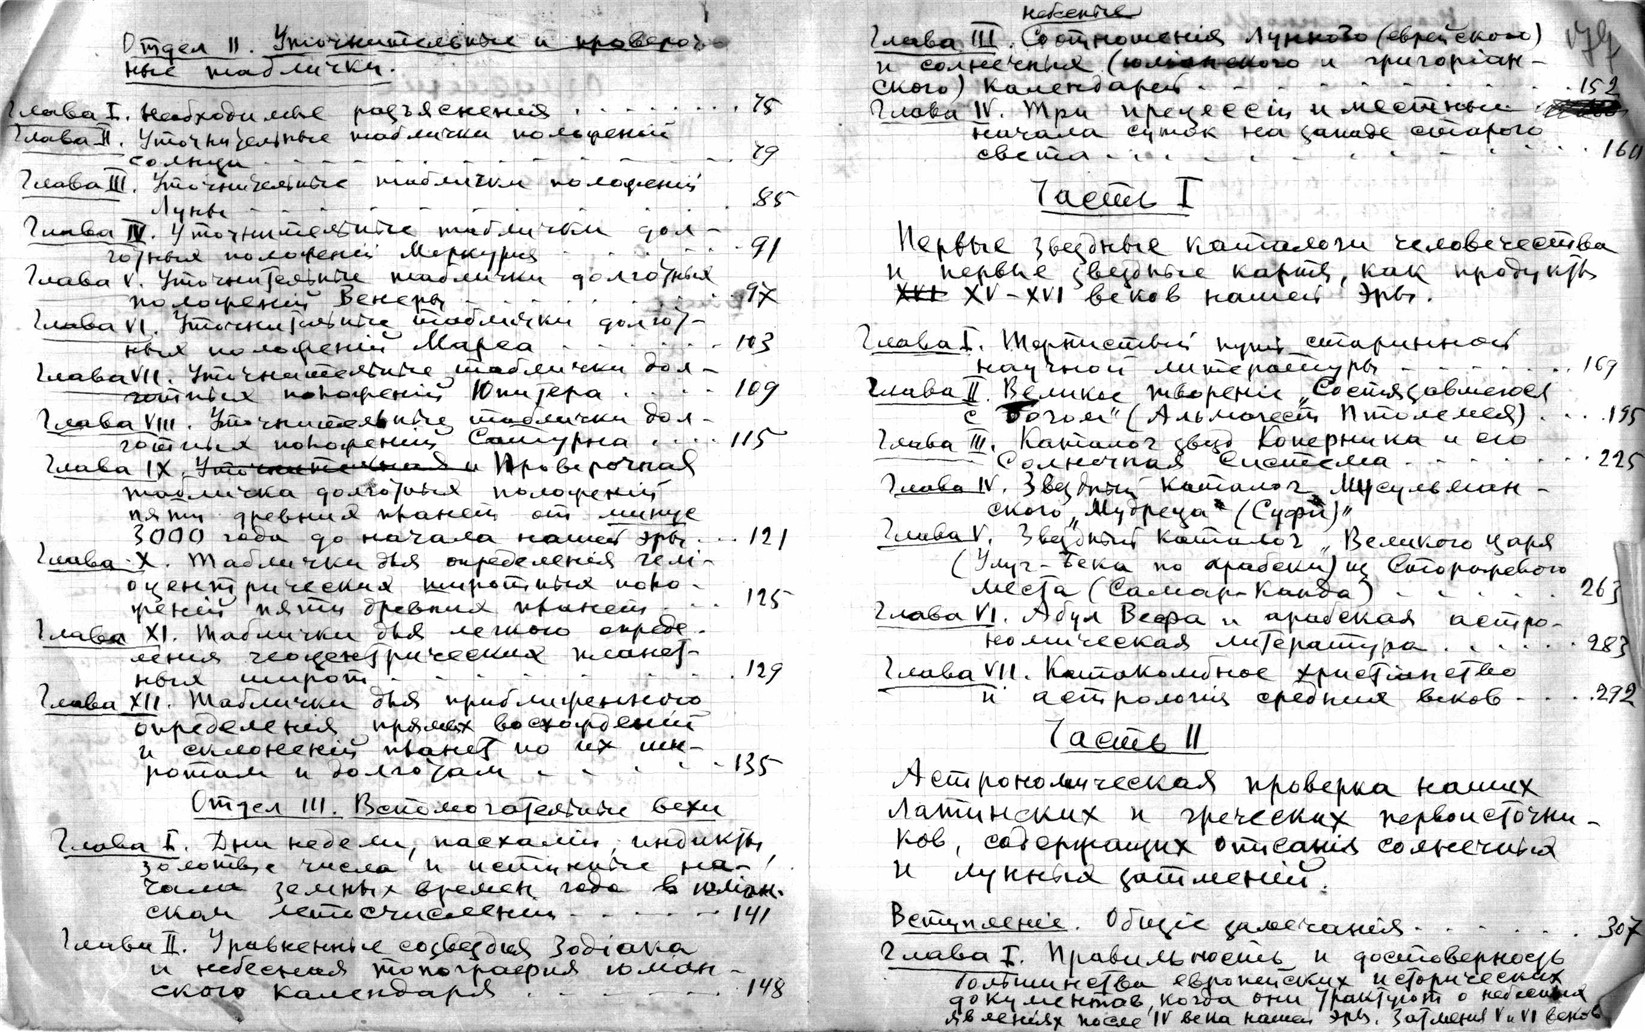 Отдел II. Уточнительные и провероч-
ные таблички.
Глава I. Необходимые разъяснения . . . . . . . 75
Глава II. Уточнительные таблички положенiй
солнца . . . . . . . . . . . 79
Глава III. Уточнительные таблички положенiй
Луны . . . . . . . . . . . 85
Глава IV. Уточнительные таблички дол-
готных положенiй Меркурия . . . . . 91
Глава V. Уточнительные таблички долготных
положенiй Венеры . . . . . . . . 97
Глава VI. Уточнительные таблички долгот-
ных положенiй Марса . . . . . . 103
Глава VII. Уточнительные таблички дол-
готных положенiй Юпитера . . . . 109
Глава VIII. Уточнительные таблички дол-
готных положенiй Сатурна . . . . 115
Глава IX. Уточнительная и Проверочная
табличка долготных положенiй
пяти древних планет от минус
3000 года до начала нашей эры. . . 121
Глава X. Таблички для определенiя гелi-
оцентрических широтных поло-
женiй пяти древних планет . . . 125
Глава XI. Таблички для легкого опреде-
ления геоцентрических планет-
ных широт . . . . . . . . . 129
Глава XII. Таблички для приближенного
определенiя прямых восхожденiй
и склоненiй планет по их ши-
ротам и долготам . . . . . . 135
Отдел III. Вспомогательные вехи
Глава I. Дни недели, пасхалiи, индикты,
золотые числа и истинные на-
чала земных времен года в юлiан-
ском летосчислении . . . . . . 141
Глава II. Уравненные созвездия Зодiака
и небесная топография юлиан-
ского календаря . . . . . . . 148
небесные
Глава III. Соотношенiя Лунного (еврейского)
и солнечных (юлианского и григорiан-
ского) календарей . . . . . . . . 152
Глава IV. Три прецессiи и местные
начала суток на западе старого
света . . . . . . . . . . . . 160
Часть I
Первые звездные каталоги человечества
и первые звездные карты, как продукты
XVI XV-XVI веков нашей эры.
Глава I. Тернистый путь старинной
научной литературы . . . . . . 169
Глава II. Великое творенiе „Состязавшегося
с Богом" (Альмагест Птолемея) . . . 195
Глава III. Каталог звезд Коперника и его
Солнечная система . . . . . . . 225
Глава IV. Звездный каталог Мусульман-
ского „Мудреца" (Суфи)"
Глава V. Звездный каталог „Великого царя
(Улуг-Бека по арабски) из Сторожевого
места (Самар-Канда) . . . . . . 263
Глава VI. Абул Вефа и арабская астро-
номическая литература . . . . . 283
Глава VII. Катакомбное христiанство
и астрологiя средних веков . . . . 292
Часть II
Астрономическая проверка наших
латинских и греческих первоисточни-
ков, содержащих описанiя солнечных
и лунных затменiй.
Вступленiе. Общiе замечанiя . . . . . . 307
Глава I. Правильность и достоверность
большинства европейских исторических
документов, когда они трактуют о небесных
явленiях после IV века нашей эры. Затменiя V и VI веков